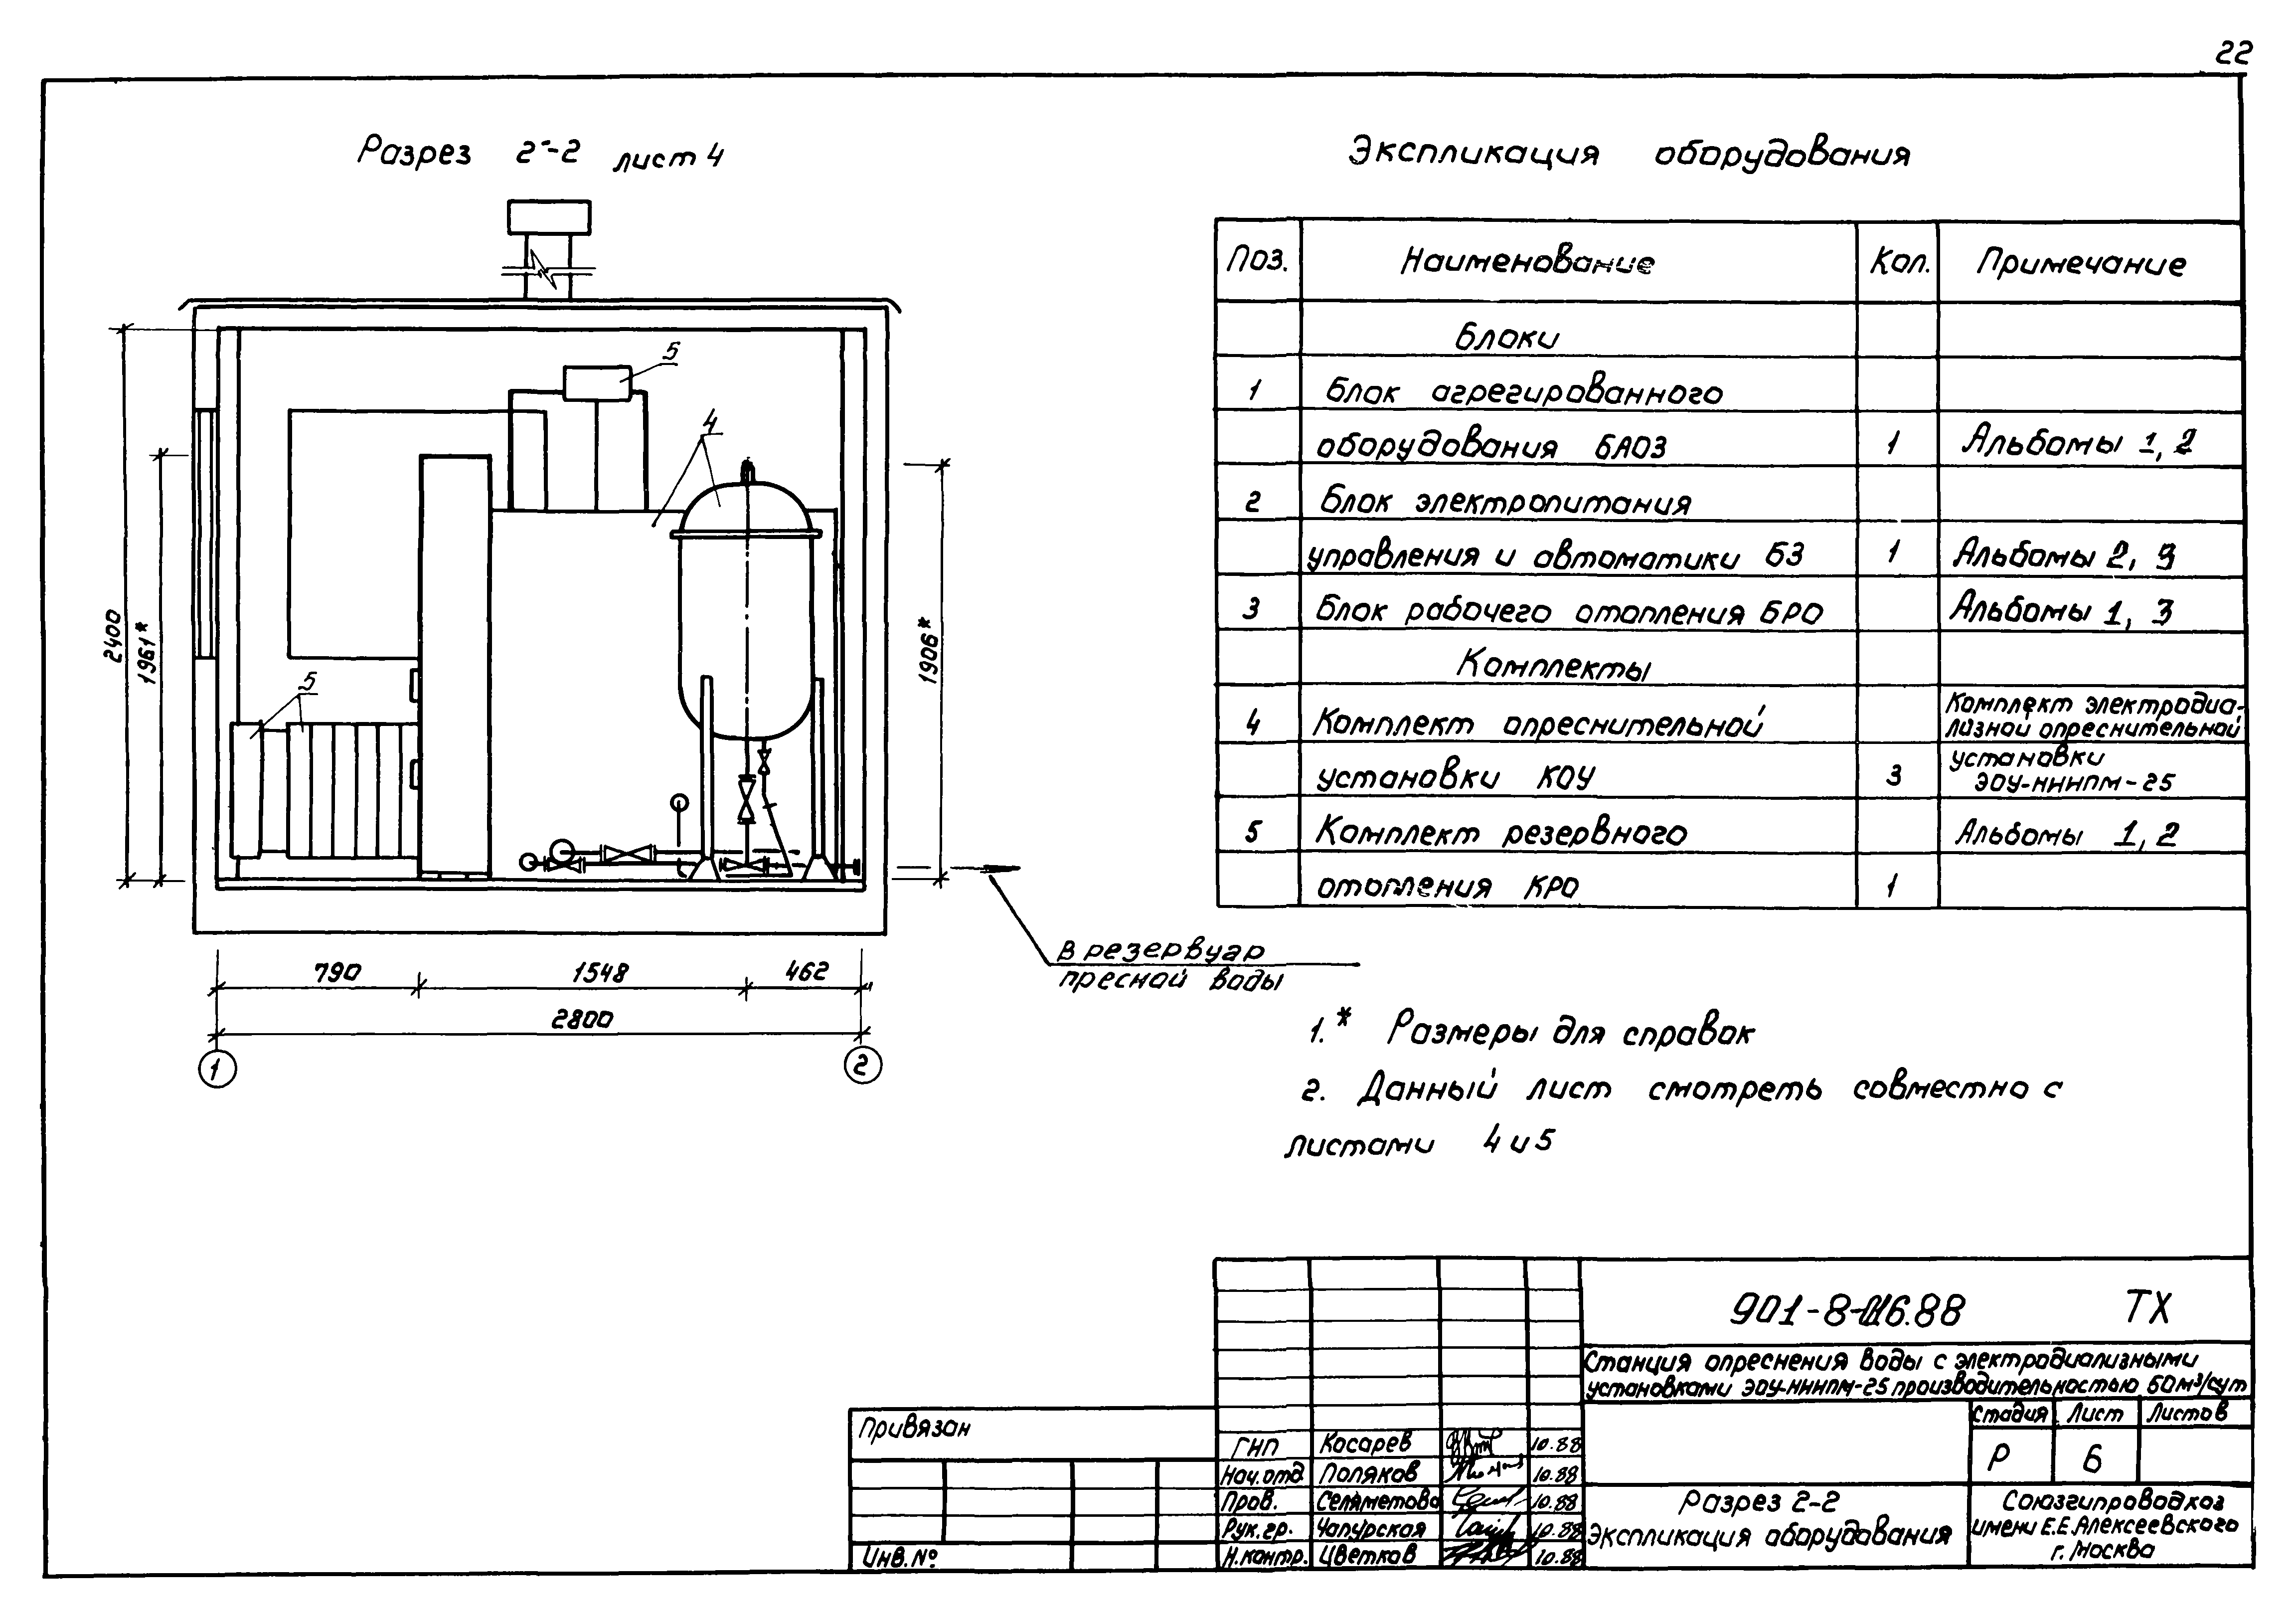 22
Разрез 2-2 лист 4
5
4
5
2400
1961*
1906*
790
1548
462
2800
1
2
В резервуар
пресной воды
Экспликация оборудования
Поз. Наименование Кол. Примечание
Блоки
1 Блок агрегированного
оборудования БАОЗ 1 Альбомы 1, 2
2 Блок электропитания
управления и автоматики БЗ 1 Альбомы 2, 3
3 Блок рабочего отопления БРО Альбомы 1, 3
Комплекты
4 Комплект опреснительной Комплект электродиа-
лизной опреснительной
установки КОУ 3 установки
ЭОУ-НИИПМ-25
5 Комплект резервного Альбомы 1, 2
отопления КРО 1
1.* Размеры для справок
2. Данный лист смотреть совместно с
листами 4 и 5
901-8-16.88 ТХ
Станция опреснения воды с электродиализными
установками ЭОУ-НИИПМ-25 производительностью 60 м³/сут
Стадия Лист Листов
Р 6
Разрез 2-2
Экспликация оборудования
Союзгипроводхоз
имени Е.Е.Алексеевского
г. Москва
Привязан
Инв. №
ГИП Косарев 10.88
Нач.отд Поляков 10.88
Пров. Селяметова 10.88
Рук.гр. Чапурская 10.88
Н.контр. Цветков 10.88